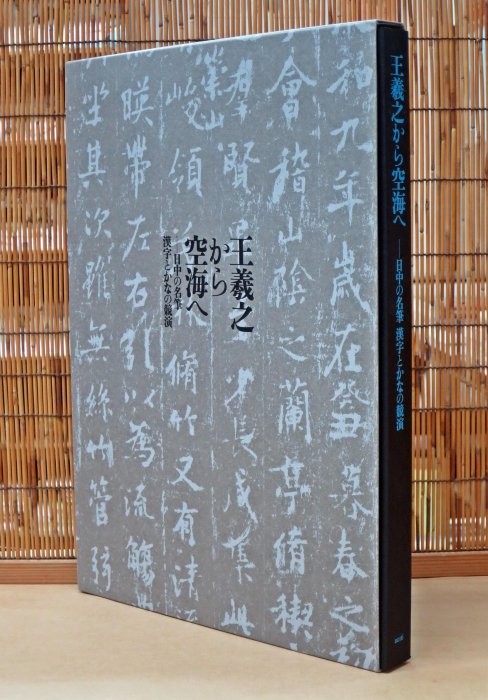 王羲之
から
空海へ
日中の名筆
漢字とかなの競演
王羲之から空海へ――日中の名筆 漢字とかなの競演
和九年歳在癸丑暮春之初
會稽山陰之蘭亭脩禊
羣賢 少長咸集此
崇山
峻領 脩竹又有清
暎帶左右引以為流觴
坐其次雖無絲竹管弦